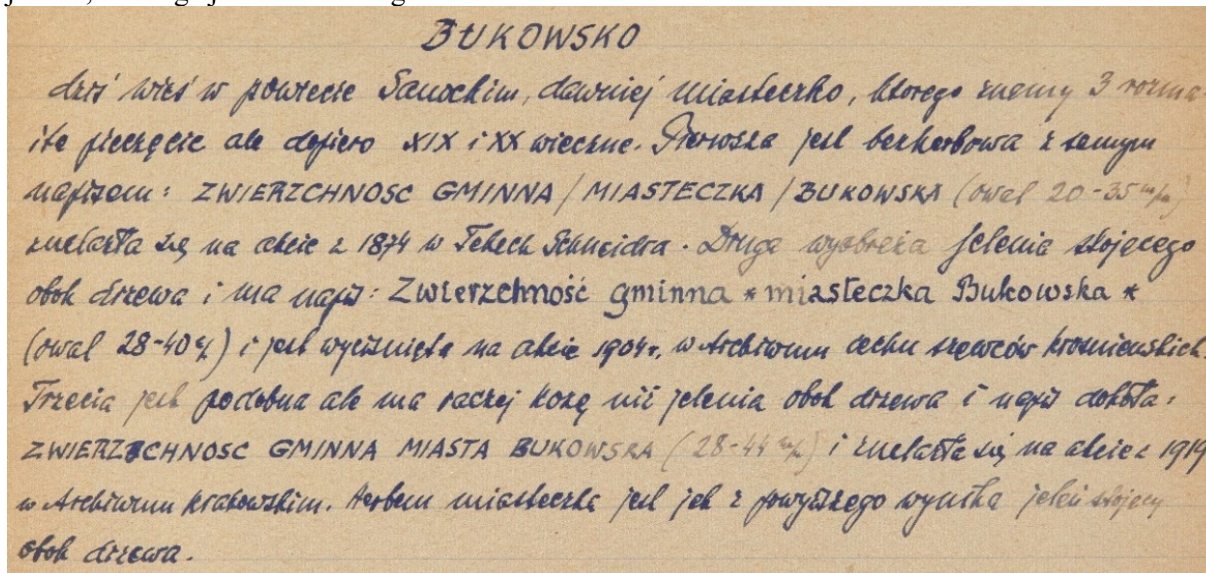 BUKOWSKO
dziś wieś w powiecie Sanockim, dawniej miasteczko, którego znamy 3 rozma-
ite pieczęcie ale dopiero XIX i XX wieczne. Pierwsza jest bezherbowa z samym
napisem: ZWIERZCHNOSC GMINNA / MIASTECZKA / BUKOWSKA (owal 20-35 m/m)
znalazła się na akcie z 1874 w Tekach Schneidra. Druga wyobraża jelenia stojącego
obok drzewa i ma napis: Zwierzchność gminna * miasteczka Bukowska *
(owal 28-40 m/m) i jest wyciśnięta na akcie 1904 r. w Archiwum cechu szewców krośnieńskich.
Trzecia jest podobna ale ma raczej kozę niż jelenia obok drzewa i napis dokoła:
ZWIERZCHNOSC GMINNA MIASTA BUKOWSKA (28-44 m/m) i znalazła się na akcie z 1919
w Archiwum krakowskim. Herbem miasteczka jest jak z powyższego wynika jeleń stojący
obok drzewa.